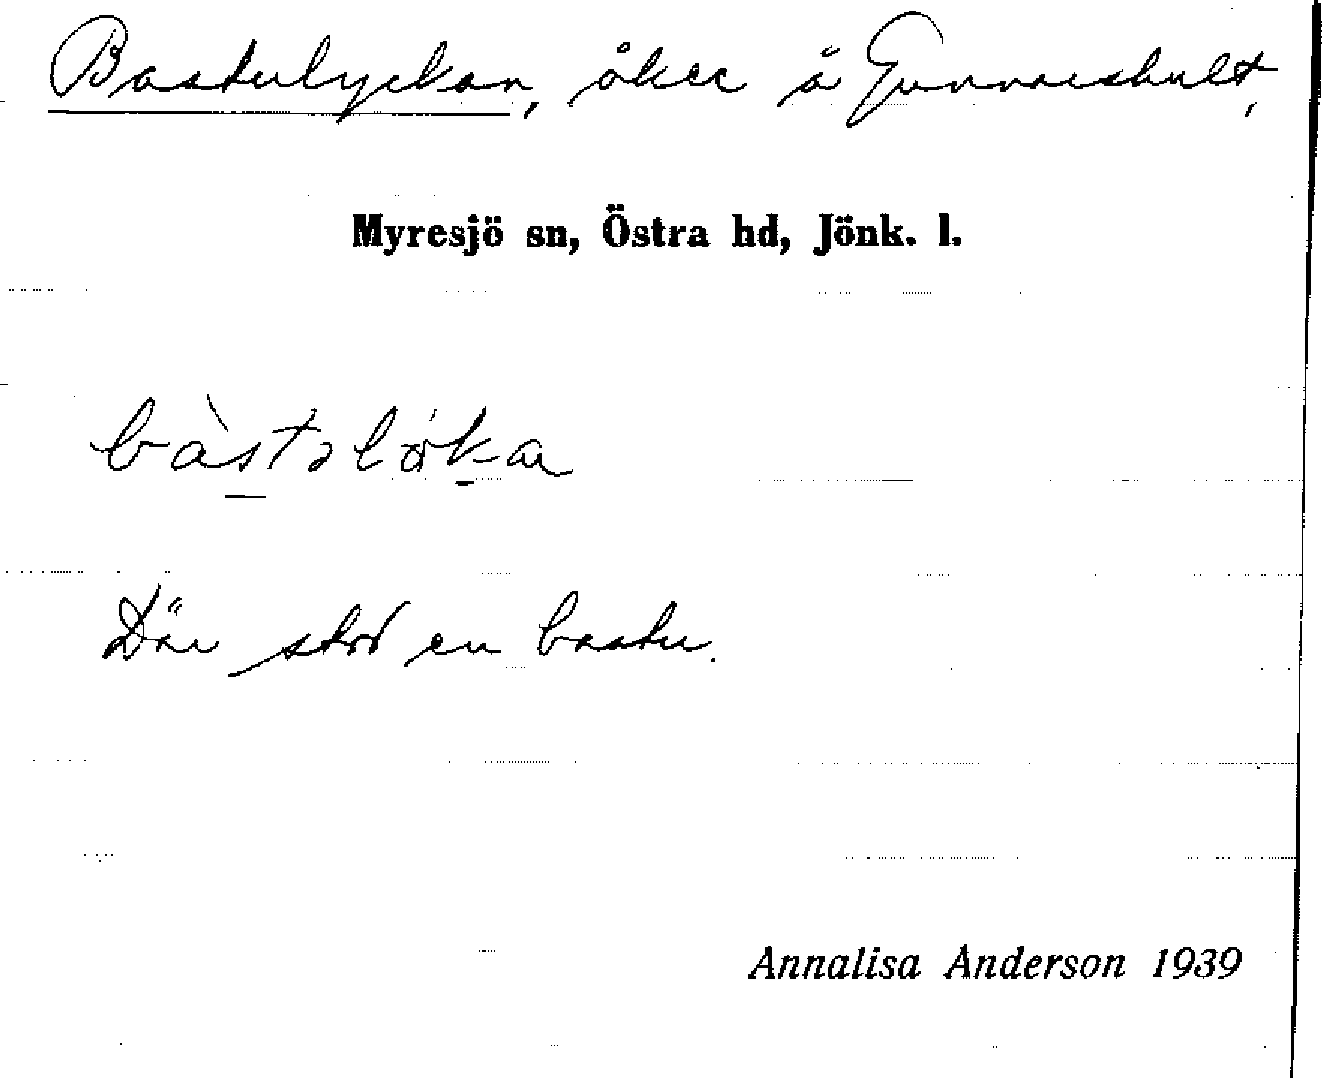 Bastulyckan, åker å Gunnarshult,
Myresjö sn, Östra hd, Jönk. l.
bàstslöka
Där stod en bastu.
Annalisa Anderson 1939